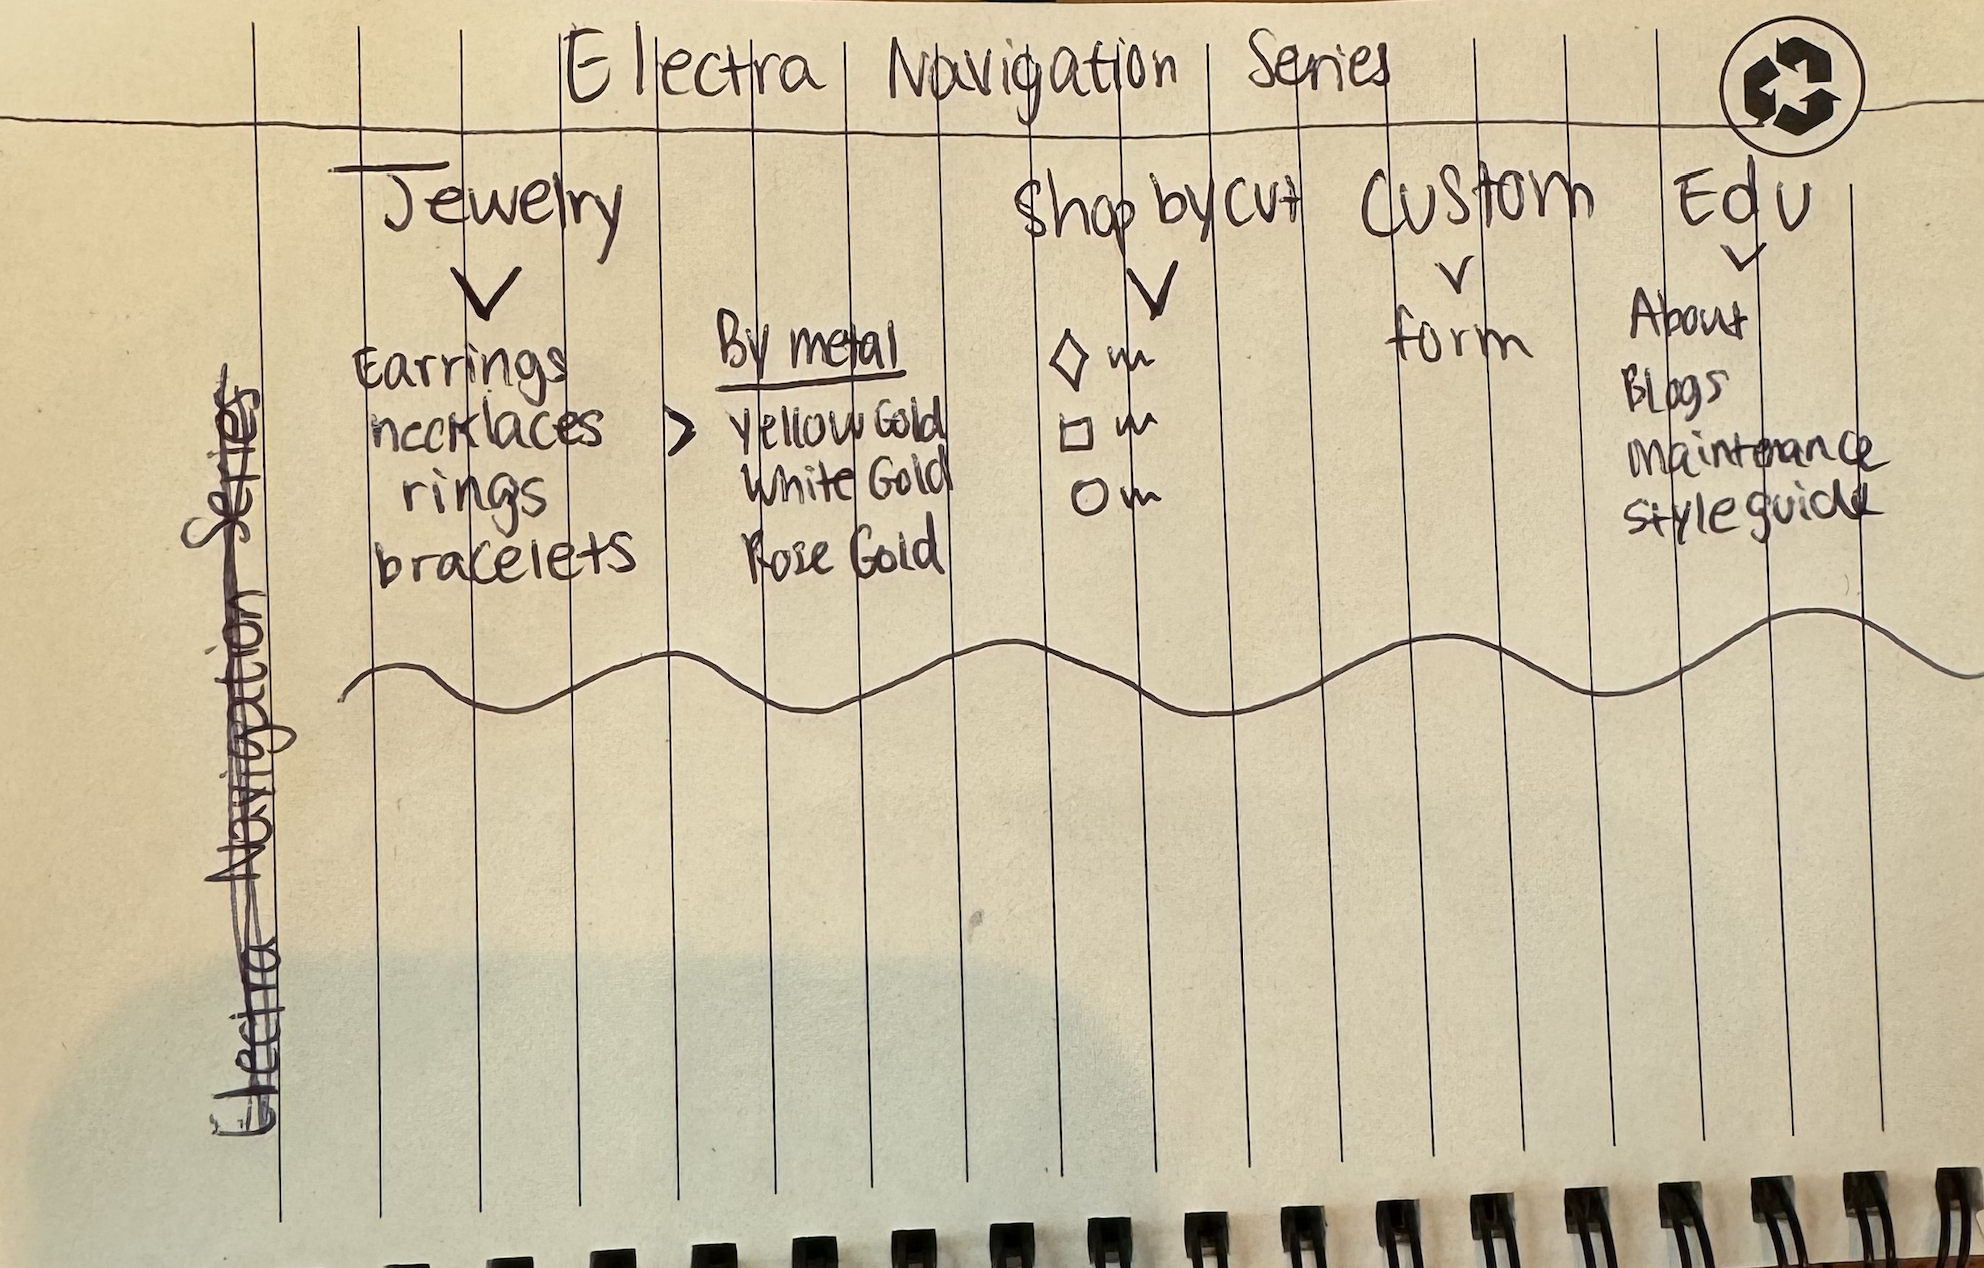 Electra Navigation Series
Jewelry
Earrings
necklaces >
rings
bracelets
By metal
Yellow Gold
White Gold
Rose Gold
Shop by cut
Custom
form
Edu
About
Blogs
Maintenance
Style guide
Electra Navigation Series